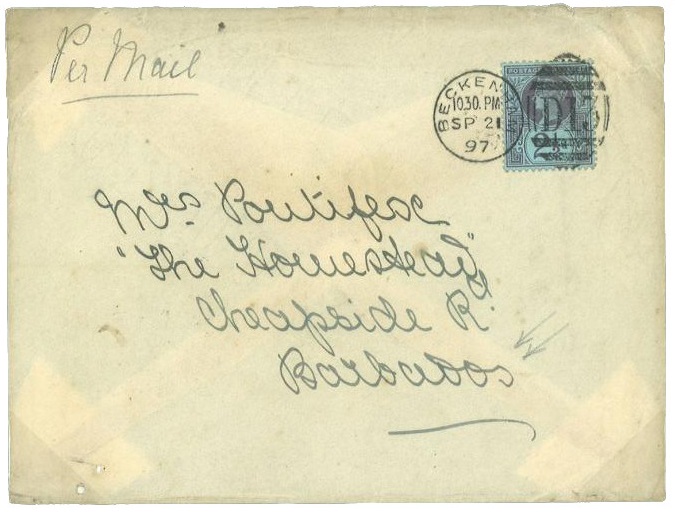 Per Mail
POSTAGE
BECKENHAM
10.30. PM
SP 21
97
D13
2½
Mrs Pontifex
"The Homestead"
Cheapside Rd
Barbados